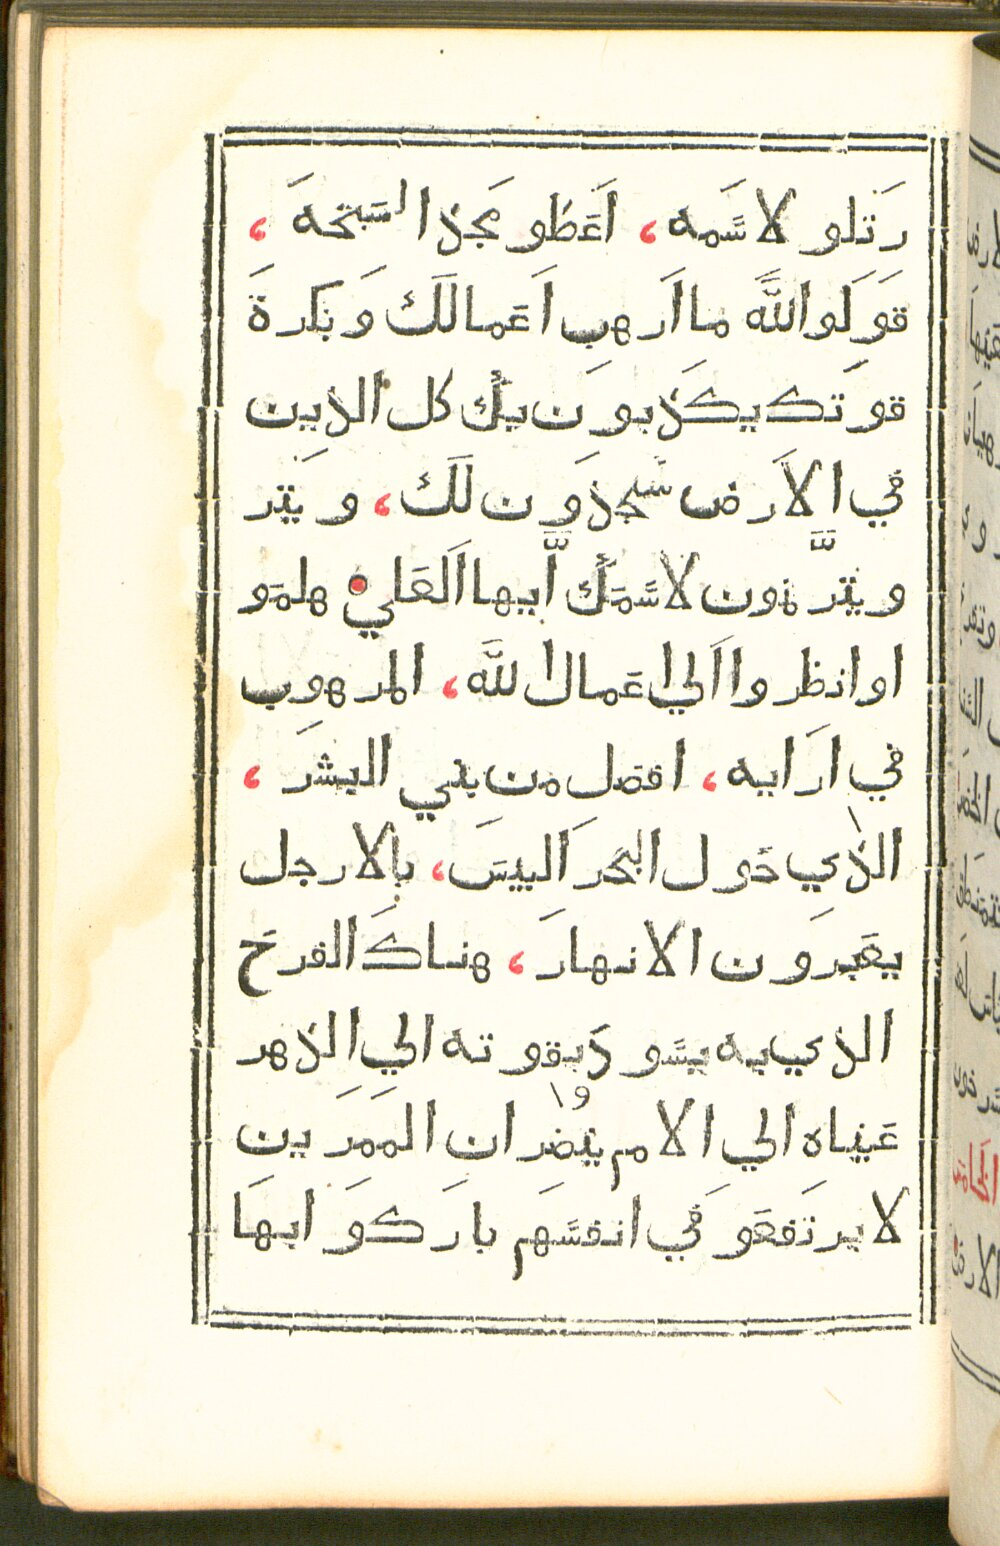 رَتلو لاسَّمه، اَعَطو مَجذ السَبحَهَ،
قوَلَوا اللَّه ما اَرهب اَعَمالَك وَبكرةَ
قوَتك يكَذبوَن بك كل الذين
في الاَرض سَجذوَن لَك، ويتر
ويتر نمون لاسَّمَك اَيها اَلعَلي هلمَو
اوانظروا الَي اعَمال اللَّه، المرهوب
في ارَايه، افضل من بني البشرَ،
الذي حَول البحرَ اَليبيسَ، بالارجل
يعَبروَن الانهارَ، هناكَ الفرحَ
الذي به يسَّودَ بقوته الي الذهر
عَيناه الي الامم ينضران الممَرَين
لا يرتَفعَوَ في انفسَّهم باركوَا ايهَا
وا